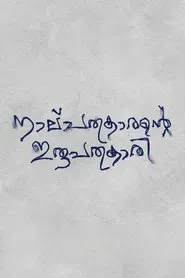 നാല്പതുകാരന്റെ
ഇരുപതുകാരി